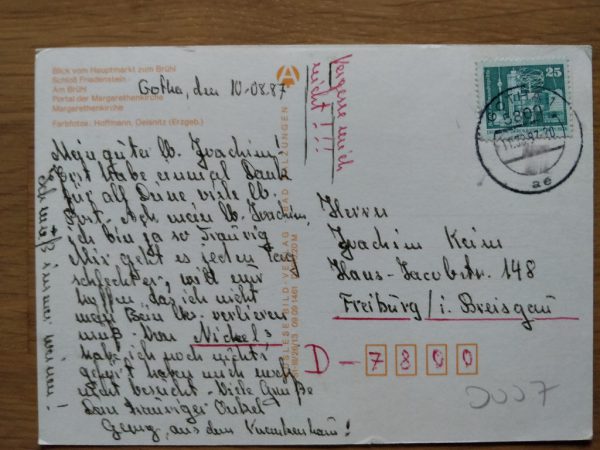 Blick vom Hauptmarkt zum Brühl
Schloß Friedenstein
Am Brühl
Portal der Margarethenkirche
Margarethenkirche
Farbfotos: Hoffmann, Oelsnitz (Erzgeb.)
Gotha, den 10-08.87
Mein guter lb. Joachim!
Erst habe einmal Dank
für all Deine viele lb.
Post. Ach mein lb. Joachim,
ich bin ja so traurig
Mir geht es jeden Tag
schlechter, will nur
hoffen das ich nicht
mein Bein verlieren
muß. Von Nickel's
habe ich noch nichts
gehört haben mich noch
nicht besucht. Viele Grüße
Dein trauriger Onkel
Georg, aus dem Krankenhaus!
Ich muß immer weinen!
Vergesse mich
nicht!!!
A
25
5800
ae
BAD SALZUNGEN
AUSLESE-BILD-VERLAG
Herrn
Joachim Keim
Hans-Jacobstr. 148
Freiburg / i. Breisgau
D-7800
0007